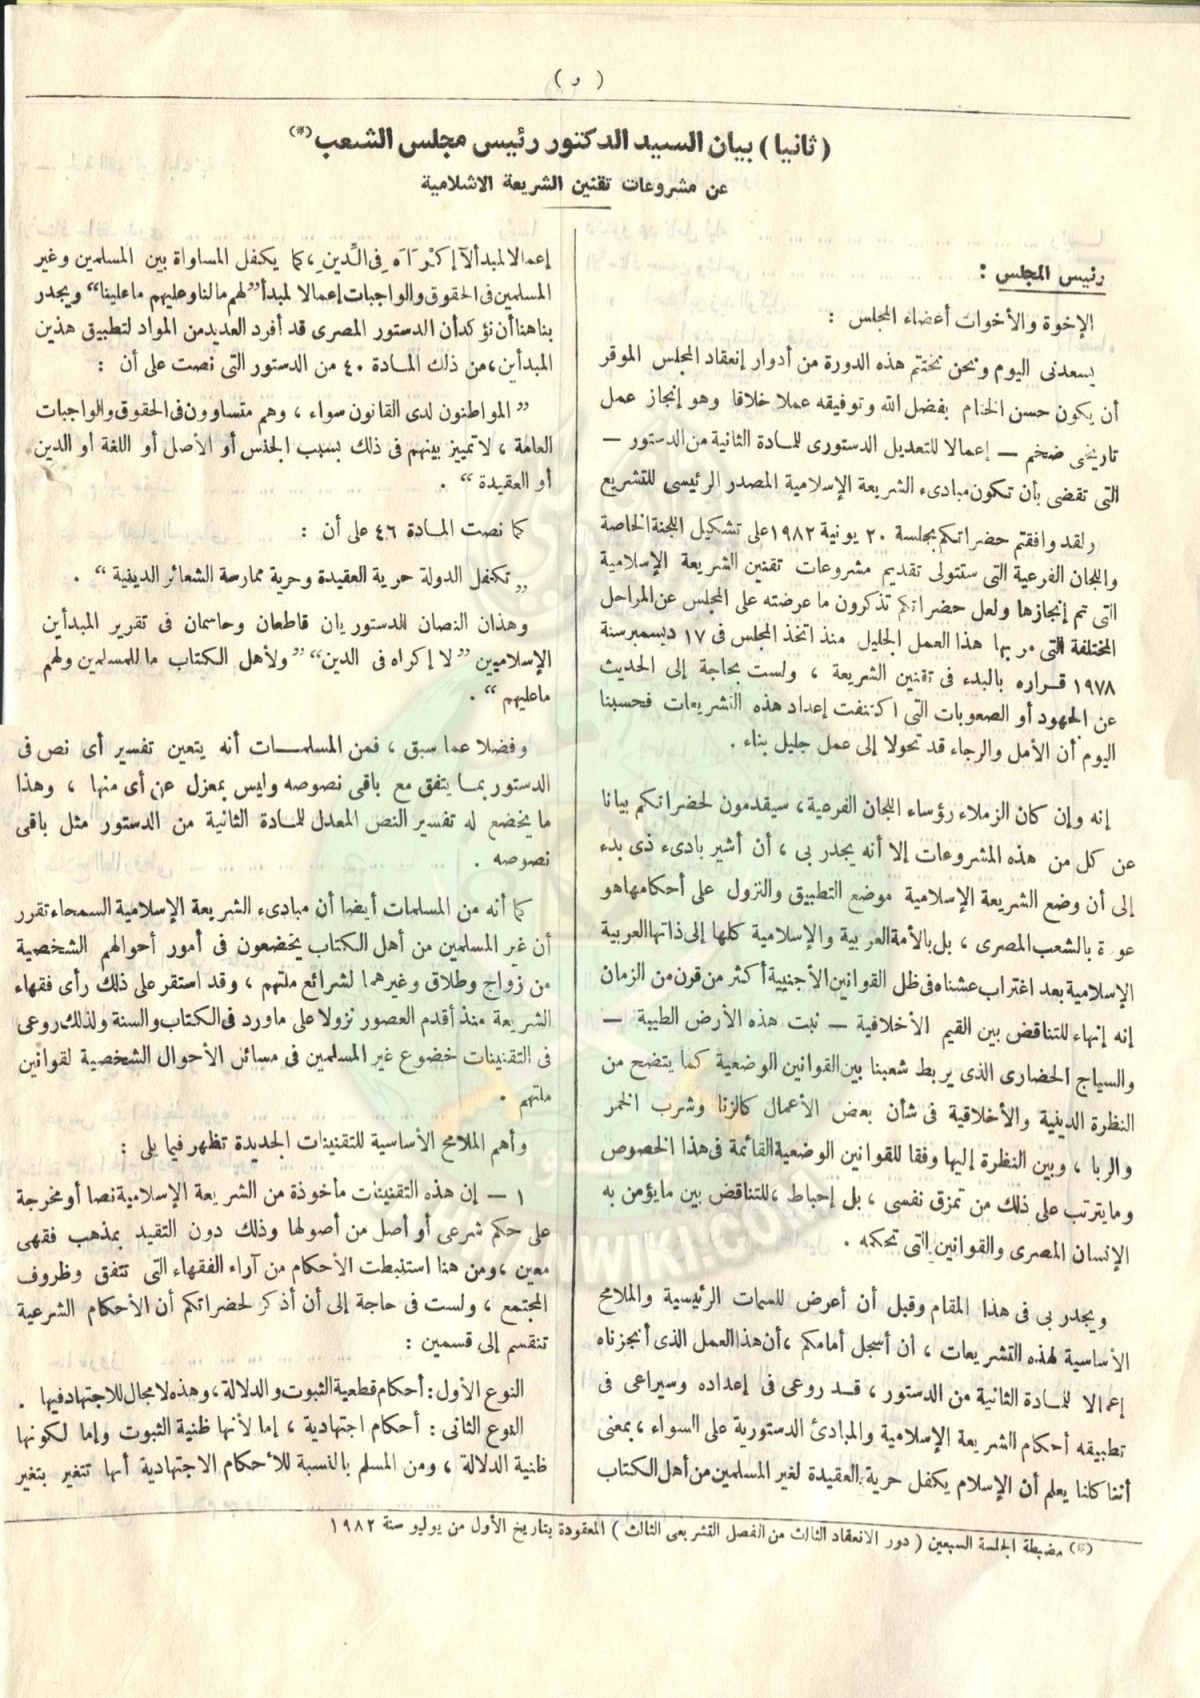 ( و )
( ثانيا ) بيان السيد الدكتور رئيس مجلس الشعب (*)
عن مشروعات تقنين الشريعة الاشلامية
رئيس المجلس :
الإخوة والأخوات أعضاء المجلس :
يسعدنى اليوم ونحن نختتم هذه الدورة من أدوار إنعقاد المجلس الموقر
أن يكون حسن الختام بفضل الله وتوفيقه عملا خلاقا وهو إنجاز عمل
تاريخى ضخم – إعمالا للتعديل الدستورى للمادة الثانية من الدستور –
التى تقضى بأن تكون مبادىء الشريعة الإسلامية المصدر الرئيسى للتشريع
ولقد وافقتم حضراتكم بجلسة ٢٠ يونية ١٩٨٢ على تشكيل اللجنة الخاصة
واللجان الفرعية التى ستتولى تقديم مشروعات تقنين الشريعة الإسلامية
التى تم إنجازها ولعل حضراتكم تذكرون ما عرضته على المجلس عن المراحل
المختلفة التى مر بها هذا العمل الجليل منذ اتخذ المجلس فى ١٧ ديسمبر سنة
١٩٧٨ قراره بالبدء فى تقنين الشريعة ، ولست بحاجة إلى الحديث
عن الجهود أو الصعوبات التى اكتنفت إعداد هذه التشريعات فحسبنا
اليوم أن الأمل والرجاء قد تحولا إلى عمل جليل بناء .
إنه وإن كان الزملاء رؤساء اللجان الفرعية ، سيقدمون لحضراتكم بيانا
عن كل من هذه المشروعات إلا أنه يجدر بى ، أن أشير بادىء ذى بدء
إلى أن وضع الشريعة الإسلامية موضع التطبيق والنزول على أحكامها هو
عودة بالشعب المصرى ، بل بالأمة العربية والإسلامية كلها إلى ذاتها العربية
الإسلامية بعد اغتراب عشناه فى ظل القوانين الأجنبية أكثر من قرن من الزمان
إنه إنهاء للتناقض بين القيم الأخلاقية – نبت هذه الأرض الطيبة –
والسياج الحضارى الذى يربط شعبنا بين القوانين الوضعية كما يتضح من
النظرة الدينية والأخلاقية فى شأن بعض الأعمال كالزنا وشرب الخمر
والربا ، وبين النظرة إليها وفقا للقوانين الوضعية القائمة فى هذا الخصوص
وما يترتب على ذلك من تمزق نفسى ، بل إحباط ، للتناقض بين ما يؤمن به
الإنسان المصرى والقوانين التى تحكمه .
ويجدر بى فى هذا المقام وقبل أن أعرض للسمات الرئيسية والملامح
الأساسية لهذه التشريعات ، أن أسجل أمامكم ، أن هذا العمل الذى أنجزناه
إعمالا للمادة الثانية من الدستور ، قد روعى فى إعداده وسيراعى فى
تطبيقه أحكام الشريعة الإسلامية والمبادئ الدستورية على السواء ، بمعنى
أننا كلنا يعلم أن الإسلام يكفل حرية العقيدة لغير المسلمين من أهل الكتاب
إعمالا لمبدأ لآ إكراه فى الدين ، كما يكفل المساواة بين المسلمين وغير
المسلمين فى الحقوق والواجبات إعمالا لمبدأ "لهم ما لنا وعليهم ما علينا" ويجدر
بنا هنا أن نؤكد أن الدستور المصرى قد أفرد العديد من المواد لتطبيق هذين
المبدأين ، من ذلك المادة ٤٠ من الدستور التى نصت على أن :
" المواطنون لدى القانون سواء ، وهم متساوون فى الحقوق والواجبات
العامة ، لا تمييز بينهم فى ذلك بسبب الجنس أو الأصل أو اللغة أو الدين
أو العقيدة " .
كما نصت المادة ٤٦ على أن :
" تكفل الدولة حرية العقيدة وحرية ممارسة الشعائر الدينية " .
وهذان النصان الدستوريان قاطعان وحاسمان فى تقرير المبدأين
الإسلاميين " لا إكراه فى الدين " " ولأهل الكتاب ما للمسلمين ولهم
ما عليهم " .
وفضلا عما سبق ، فمن المسلمات أنه يتعين تفسير أى نص فى
الدستور بما يتفق مع باقى نصوصه وليس بمعزل عن أى منها ، وهذا
ما يخضع له تفسير النص المعدل للمادة الثانية من الدستور مثل باقى
نصوصه .
كما أنه من المسلمات أيضا أن مبادىء الشريعة الإسلامية السمحاء تقرر
أن غير المسلمين من أهل الكتاب يخضعون فى أمور أحوالهم الشخصية
من زواج وطلاق وغيرهما لشرائع ملتهم ، وقد استقر على ذلك رأى فقهاء
الشريعة منذ أقدم العصور نزولا على ما ورد فى الكتاب والسنة ولذلك روعى
فى التقنينات خضوع غير المسلمين فى مسائل الأحوال الشخصية لقوانين
ملتهم .
وأهم الملامح الأساسية للتقنينات الجديدة تظهر فيما يلى :
١ – إن هذه التقنينات مأخوذة من الشريعة الإسلامية نصا أو مخرجة
على حكم شرعى أو أصل من أصولها وذلك دون التقيد بمذهب فقهى
معين ، ومن هنا استنبطت الأحكام من آراء الفقهاء التى تتفق وظروف
المجتمع ، ولست فى حاجة إلى أن أذكر لحضراتكم أن الأحكام الشرعية
تنقسم إلى قسمين :
النوع الأول : أحكام قطعية الثبوت والدلالة ، وهذه لا مجال للاجتهاد فيها .
النوع الثانى : أحكام اجتهادية ، إما لأنها ظنية الثبوت وإما لكونها
ظنية الدلالة ، ومن المسلم بالنسبة للأحكام الاجتهادية أنها تتغير بتغير
(*) مضبطة الجلسة السبعين ( دور الانعقاد الثالث من الفصل التشريعى الثالث ) المعقودة بتاريخ الأول من يوليو سنة ١٩٨٢